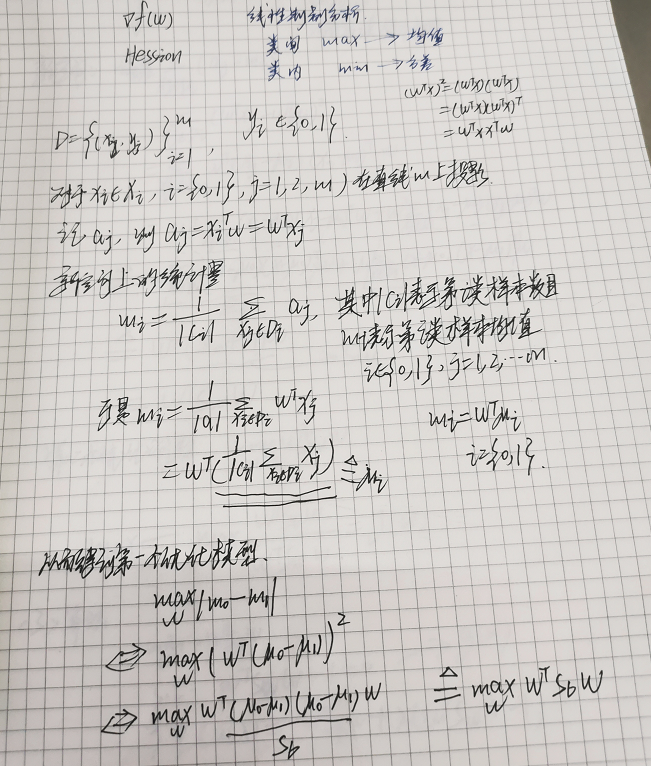 ∇f(w)
Hession
线性判别分析.
类间 max → 均值
类内 min → 方差
(wᵀx)² = (wᵀx)(wᵀx)
= (wᵀx)(wᵀx)ᵀ
= wᵀxxᵀw
D = {(xⱼ, yⱼ)}ᵐᵢ₌₁, yᵢ ∈ {0,1}
对于 xⱼ∈Xᵢ, i={0,1}, j=1,2, m) 在直线w上投影.
记 aⱼ, 则 aⱼ = xⱼᵀw = wᵀxⱼ
新空间上的统计量
mᵢ = 1/|Cᵢ| Σ_{xⱼ∈Dᵢ} aⱼ, 其中|Cᵢ|表示第i类样本数目
mᵢ表示第i类样本均值
i∈{0,1}, j=1,2,⋯m.
于是 mᵢ = 1/|Cᵢ| Σ_{xⱼ∈Dᵢ} wᵀxⱼ
= wᵀ(1/|Cᵢ| Σ_{xⱼ∈Dᵢ} xⱼ) ≜ μᵢ
mᵢ = wᵀμᵢ
i={0,1}.
从而得到第一个优化模型.
max_w |m₀-m₁|
⇔ max_w (wᵀ(μ₀-μ₁))²
⇔ max_w wᵀ(μ₀-μ₁)(μ₀-μ₁)w ≜ max_w wᵀS_b w
S_b